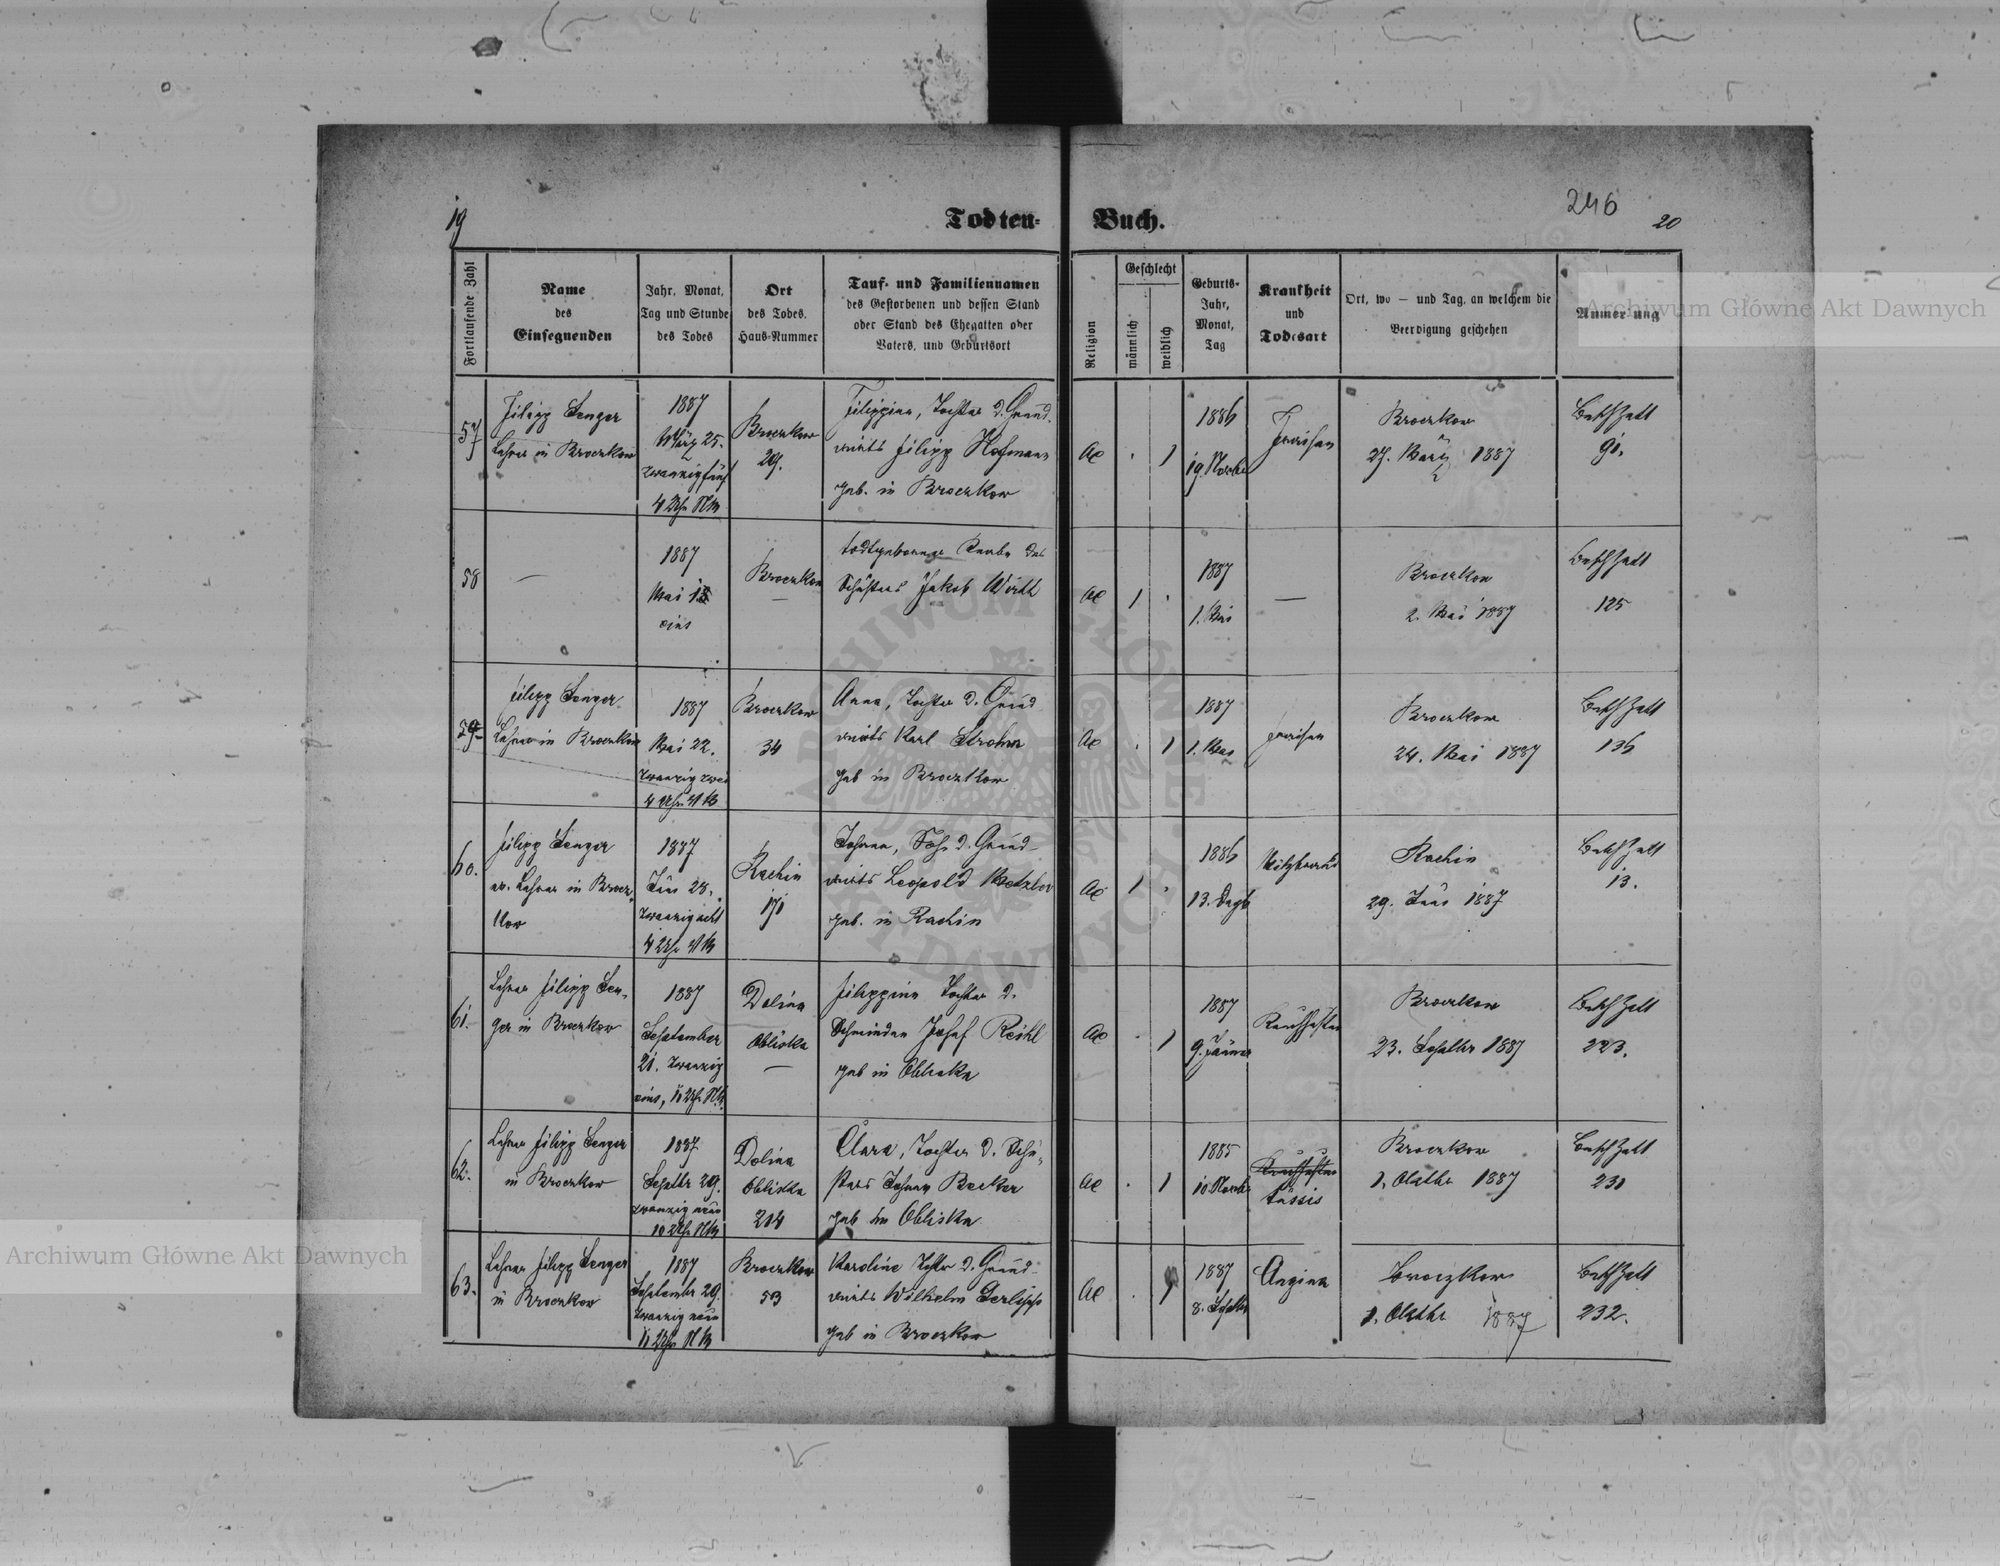 19
Todten-
Buch.
246
20
Fortlaufende Zahl
Name
des
Einsegnenden
Jahr, Monat,
Tag und Stunde
des Todes
Ort
des Todes.
Haus-Nummer
Tauf- und Familiennamen
des Gestorbenen und dessen Stand
oder Stand des Ehegatten oder
Vaters, und Geburtsort
Religion
Geschlecht
männlich
weiblich
Geburts-
Jahr,
Monat,
Tag
Krankheit
und
Todesart
Ort, wo — und Tag, an welchem die
Beerdigung geschehen
Anmer ung
57
Filipp Senger
Lehrer in Broczkow
1887
März 25.
zwanzigfünf
4 Uhr NM
Broczkow
29.
Filippina, Tochter d. Grund-
wirts Filipp Hofmann
geb. in Broczkow
AC
1
1886
19. Novbr
Fraisen
Broczkow
27. März 1887
BethZall
91.
58
—
1887
Mai
eins
Broczkow
—
todtgeborener Knabe des
Schusters Jakob Wirth
AC
1
1887
1. Mai
—
Broczkow
2. Mai 1887
BethZall
125
59
Filipp Senger
Lehrer in Broczkow
1887
Mai 22.
zwanzig zwei
4 Uhr
Broczkow
34
Anna, Tochter d. Grund
wirts Karl Strohm
geb in Broczkow
AC
1
1887
1. Mai
Fraisen
Broczkow
24. Mai 1887
BethZall
136
60.
Filipp Senger
ev. Lehrer in Brocz-
kow
1887
28.
zwanzig acht
4 Uhr
Rachin
171
Johann, Sohn d. Grund-
wirts Leopold Metzler
geb. in Rachin
AC
1
1886
13.
Rachin
29. 1887
BethZall
13.
61.
Lehrer Filipp Sen-
ger in Broczkow
1887
September
21. zwanzig
eins, 11 Uhr NM
Dolina
Obliska
—
Filippina Tochter d.
Josef
geb in Obliska
AC
1
1887
9. Jänner
Keuchhusten
Broczkow
23. Septbr 1887
BethZall
223.
62.
Lehrer Filipp Senger
in Broczkow
1887
Septbr 29.
zwanzig neun
10 Uhr NM
Dolina
Obliska
214
Clara, Tochter d. Schu-
sters Johann Becker
geb in Obliska
AC
1
1885
10 Novbr
Keuchhusten
tussis
Broczkow
1. Oktbr 1887
BethZall
231
63.
Lehrer Filipp Senger
in Broczkow
1887
Septembr 29.
zwanzig neun
11 Uhr NM
Broczkow
53
Karoline Tochter d. Grund-
wirts Wilhelm
geb in Broczkow
AC
1
1887
8. Septbr
Angina
Broczkow
1. Oktbr 1887
BethZall
232.
Archiwum Główne Akt Dawnych
Archiwum Główne Akt Dawnych
ARCHIWUM GŁÓWNE AKT DAWNYCH